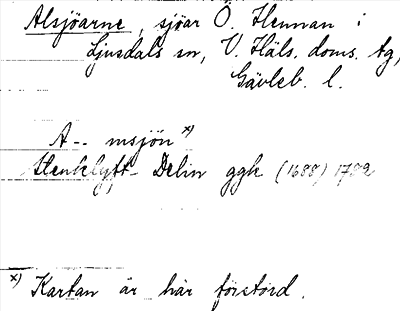 Alsjöarne, sjöar O. Hennan i
Ljusdals sn, V. Häls. doms. tg,
Gävleb. l.
A-- msjön x)
Delin ggk (1688) 1782
x) Kartan är här förstörd.